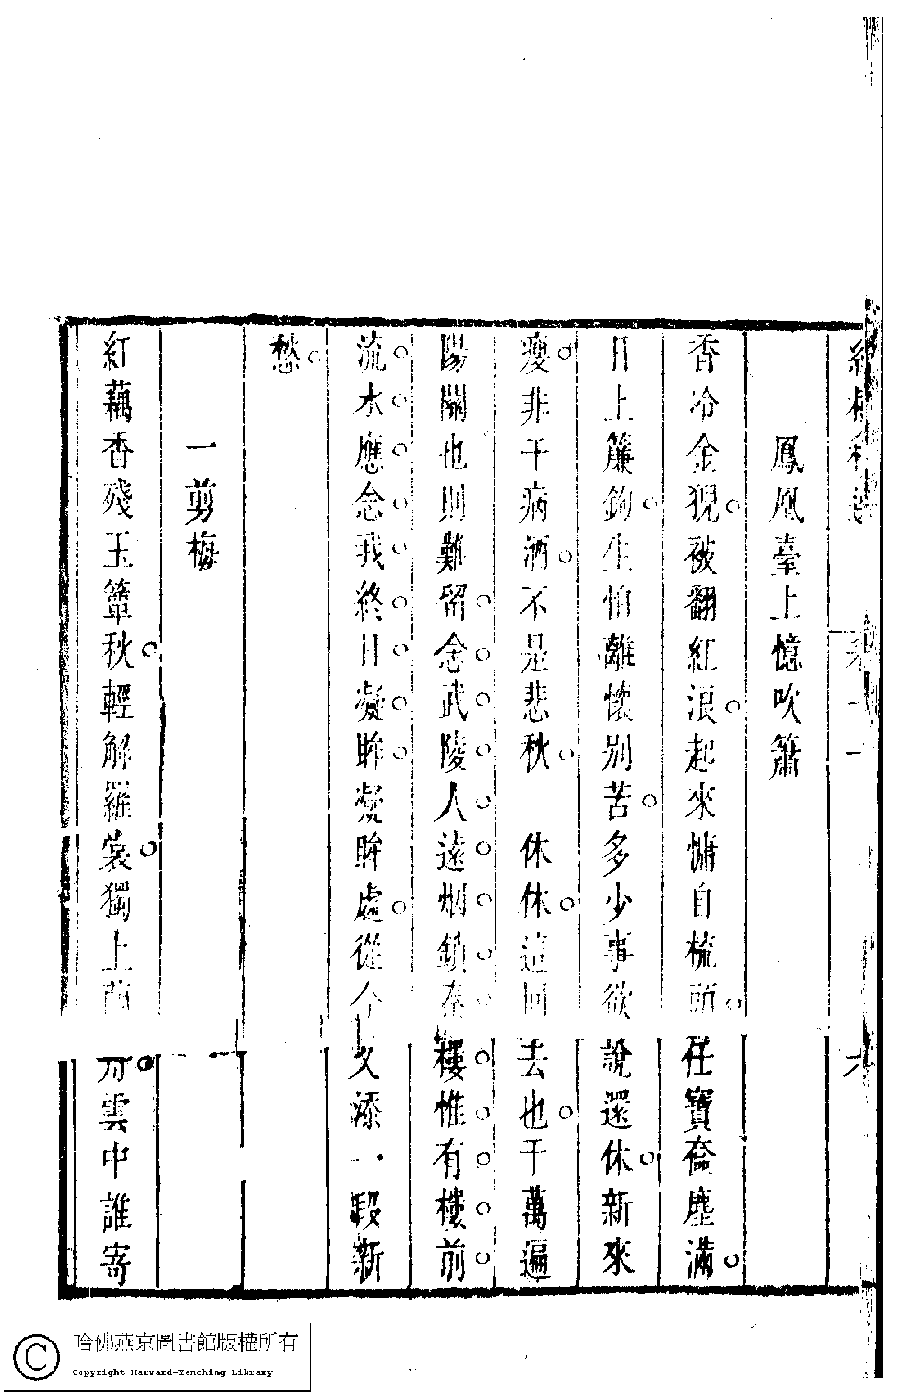 鳳凰臺上憶吹簫
香冷金猊被翻紅浪起來慵自梳頭任寶奩塵滿
日上簾鉤生怕離懷別苦多少事欲說還休新來
瘦非干病酒不是悲秋　休休這回去也千萬遍
陽關也則難留念武陵人遠烟鎖秦樓惟有樓前
流水應念我終日凝眸凝眸處從今又添一段新
愁
一剪梅
紅藕香殘玉簟秋輕解羅裳獨上蘭舟雲中誰寄
哈佛燕京圖書館版權所有
Copyright Harvard-Yenching Library